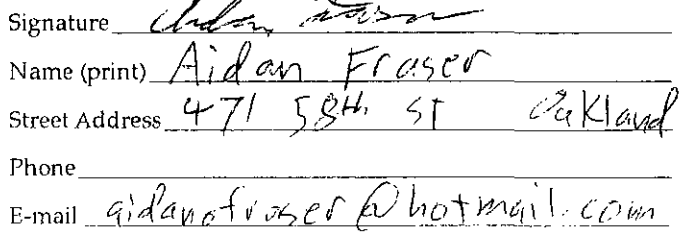 Signature
Name (print) Aidan Fraser
Street Address 471 58th St Oakland
Phone
E-mail aidanofraser@hotmail.com